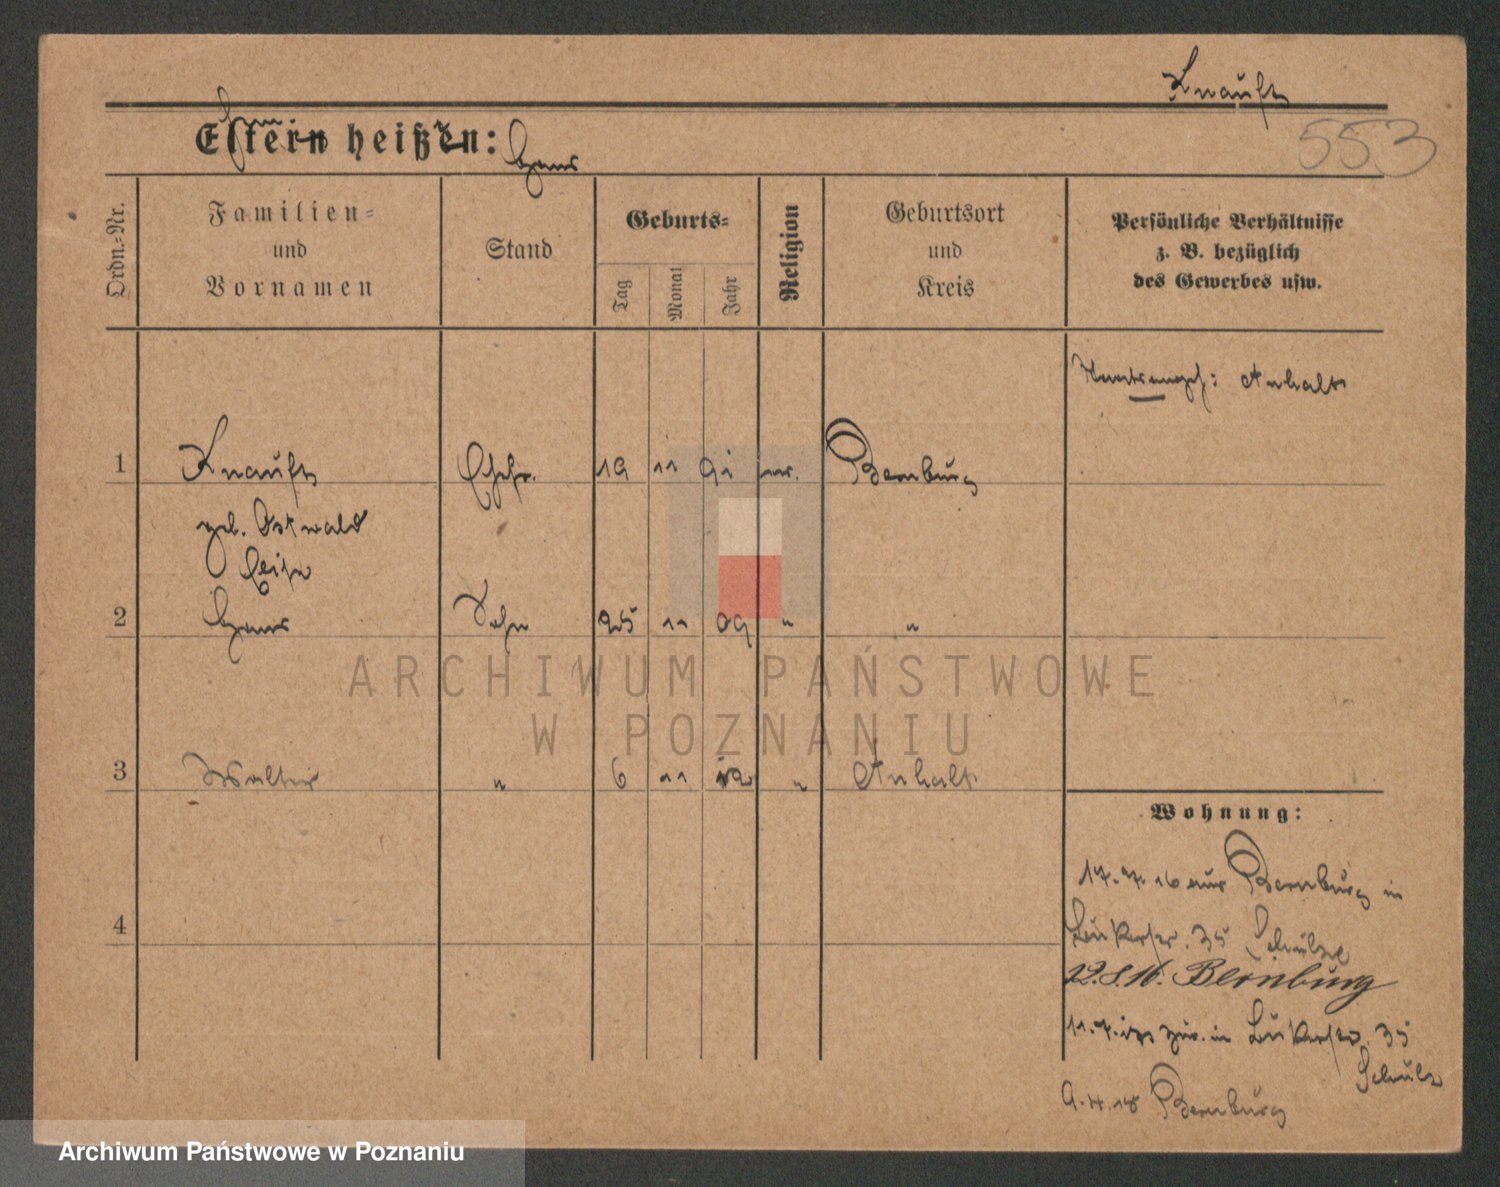 Knauft
553
Eltern heißen: Hans
Ordn.-Nr.
Familien-
und
Vornamen
Stand
Geburts-
Tag
Monat
Jahr
Religion
Geburtsort
und
Kreis
Persönliche Verhältnisse
z. B. bezüglich
des Gewerbes usw.
Staatsangeh: Anhalt
1 Knauft Ehefr. 19 11 91 ev. Bernburg
geb. Ostwald
2 Hans Sohn 25 11 09 " "
3 Walter " 6 11 12 " Anhalt
Wohnung:
17.7.16 aus Bernburg in
35 Schulze
4
12.8.16. Bernburg
11.7.17 zur. in 35
Schulz
9.4.18 Bernburg
ARCHIWUM PAŃSTWOWE
W POZNANIU
Archiwum Państwowe w Poznaniu